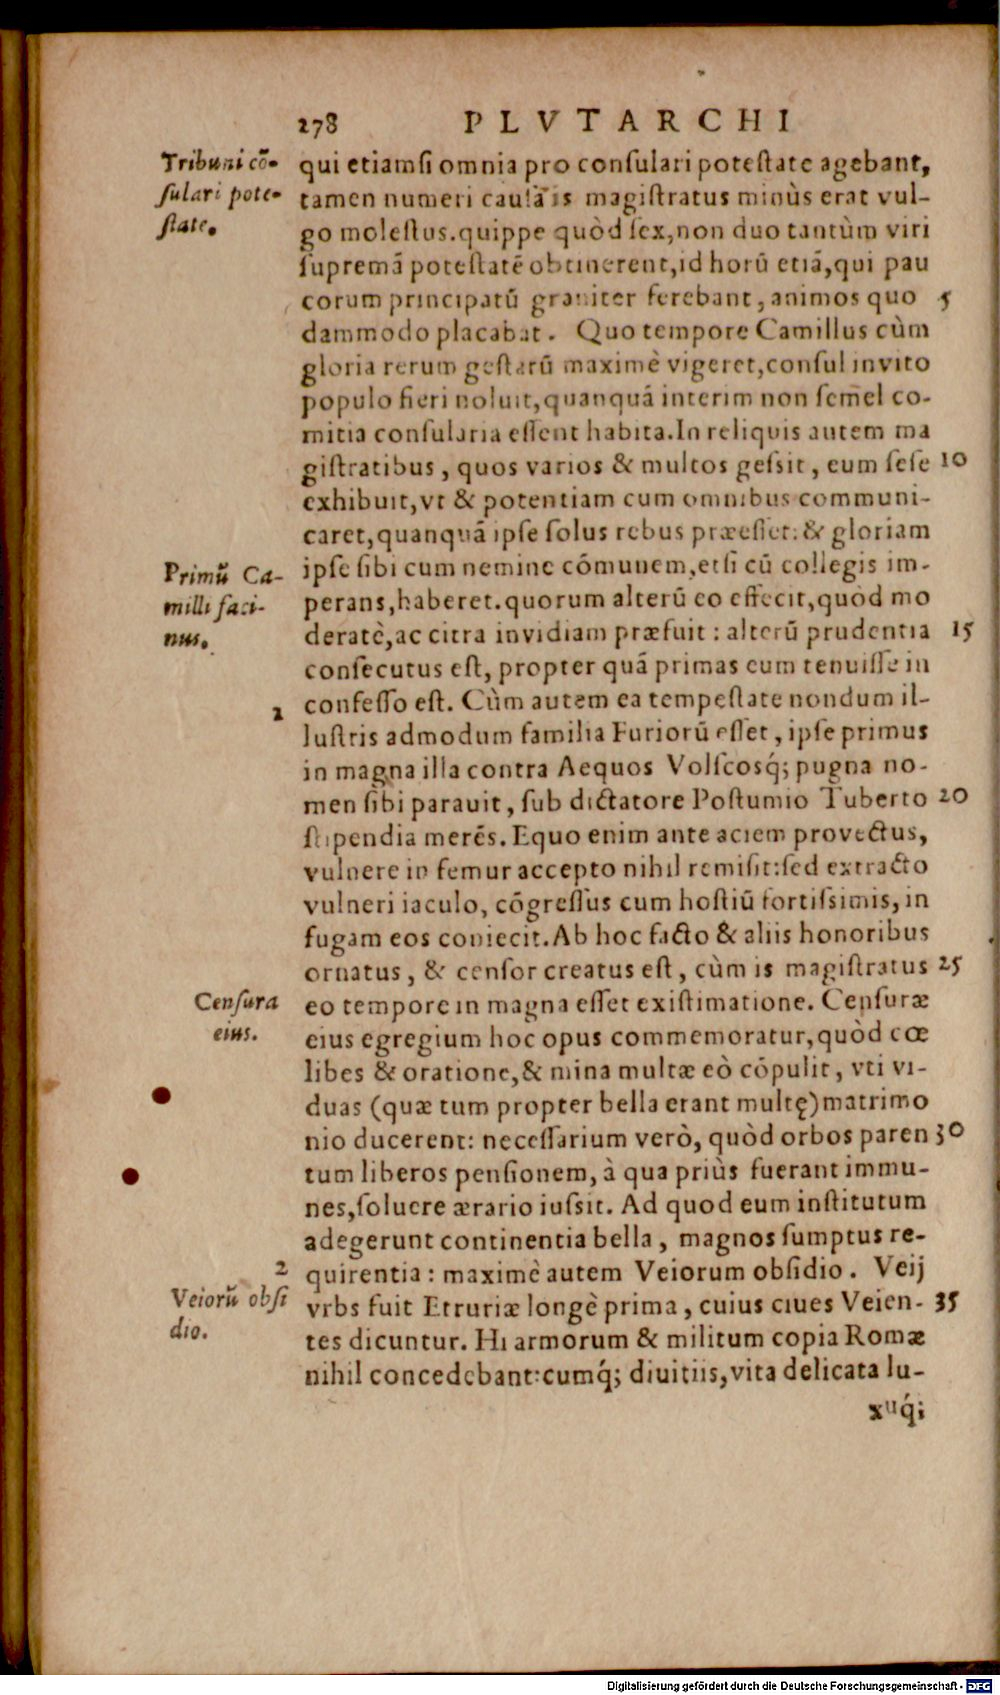 278 PLVTARCHI
Tribuni cō-
sulari pote-
state.
qui etiamsi omnia pro consulari potestate agebant,
tamen numeri causa is magistratus minùs erat vul-
go molestus. quippe quòd sex, non duo tantùm viri
supremā potestatē obtinerent, id horū etiā, qui pau
corum principatū grauiter ferebant, animos quo 5
dammodo placabat. Quo tempore Camillus cùm
gloria rerum gestarū maximè vigeret, consul invito
populo fieri noluit, quanquā interim non semel co-
mitia consularia essent habita. In reliquis autem ma
gistratibus, quos varios & multos gessit, eum sese 10
exhibuit, vt & potentiam cum omnibus communi-
caret, quanquā ipse solus rebus præesset: & gloriam
Primū Ca-
milli faci-
nus.
ipse sibi cum nemine cōmunem, etsi cū collegis im-
perans, haberet. quorum alterū eo effecit, quòd mo
deratè, ac citra invidiam præfuit: alterū prudentia 15
consecutus est, propter quā primas eum tenuisse in
1
confesso est. Cùm autem ea tempestate nondum il-
lustris admodum familia Furiorū esset, ipse primus
in magna illa contra Aequos Volscosq́; pugna no-
men sibi parauit, sub dictatore Postumio Tuberto 20
stipendia merēs. Equo enim ante aciem provectus,
vulnere in femur accepto nihil remisit: sed extracto
vulneri iaculo, cōgressus cum hostiū fortissimis, in
fugam eos coniecit. Ab hoc facto & aliis honoribus
ornatus, & censor creatus est, cùm is magistratus 25
Censura
eius.
eo tempore in magna esset existimatione. Censuræ
eius egregium hoc opus commemoratur, quòd cœ
libes & oratione, & mina multæ eò cōpulit, vti vi-
duas (quæ tum propter bella erant multę) matrimo
nio ducerent: necessarium verò, quòd orbos paren 30
tum liberos pensionem, à qua priùs fuerant immu-
nes, soluere ærario iussit. Ad quod eum institutum
adegerunt continentia bella, magnos sumptus re-
2
Veiorū obsi
dio.
quirentia: maximè autem Veiorum obsidio. Veij
vrbs fuit Etruriæ longè prima, cuius ciues Veien- 35
tes dicuntur. Hi armorum & militum copia Romæ
nihil concedebant: cumq́; diuitiis, vita delicata lu-
xuq́;
Digitalisierung gefördert durch die Deutsche Forschungsgemeinschaft - DFG